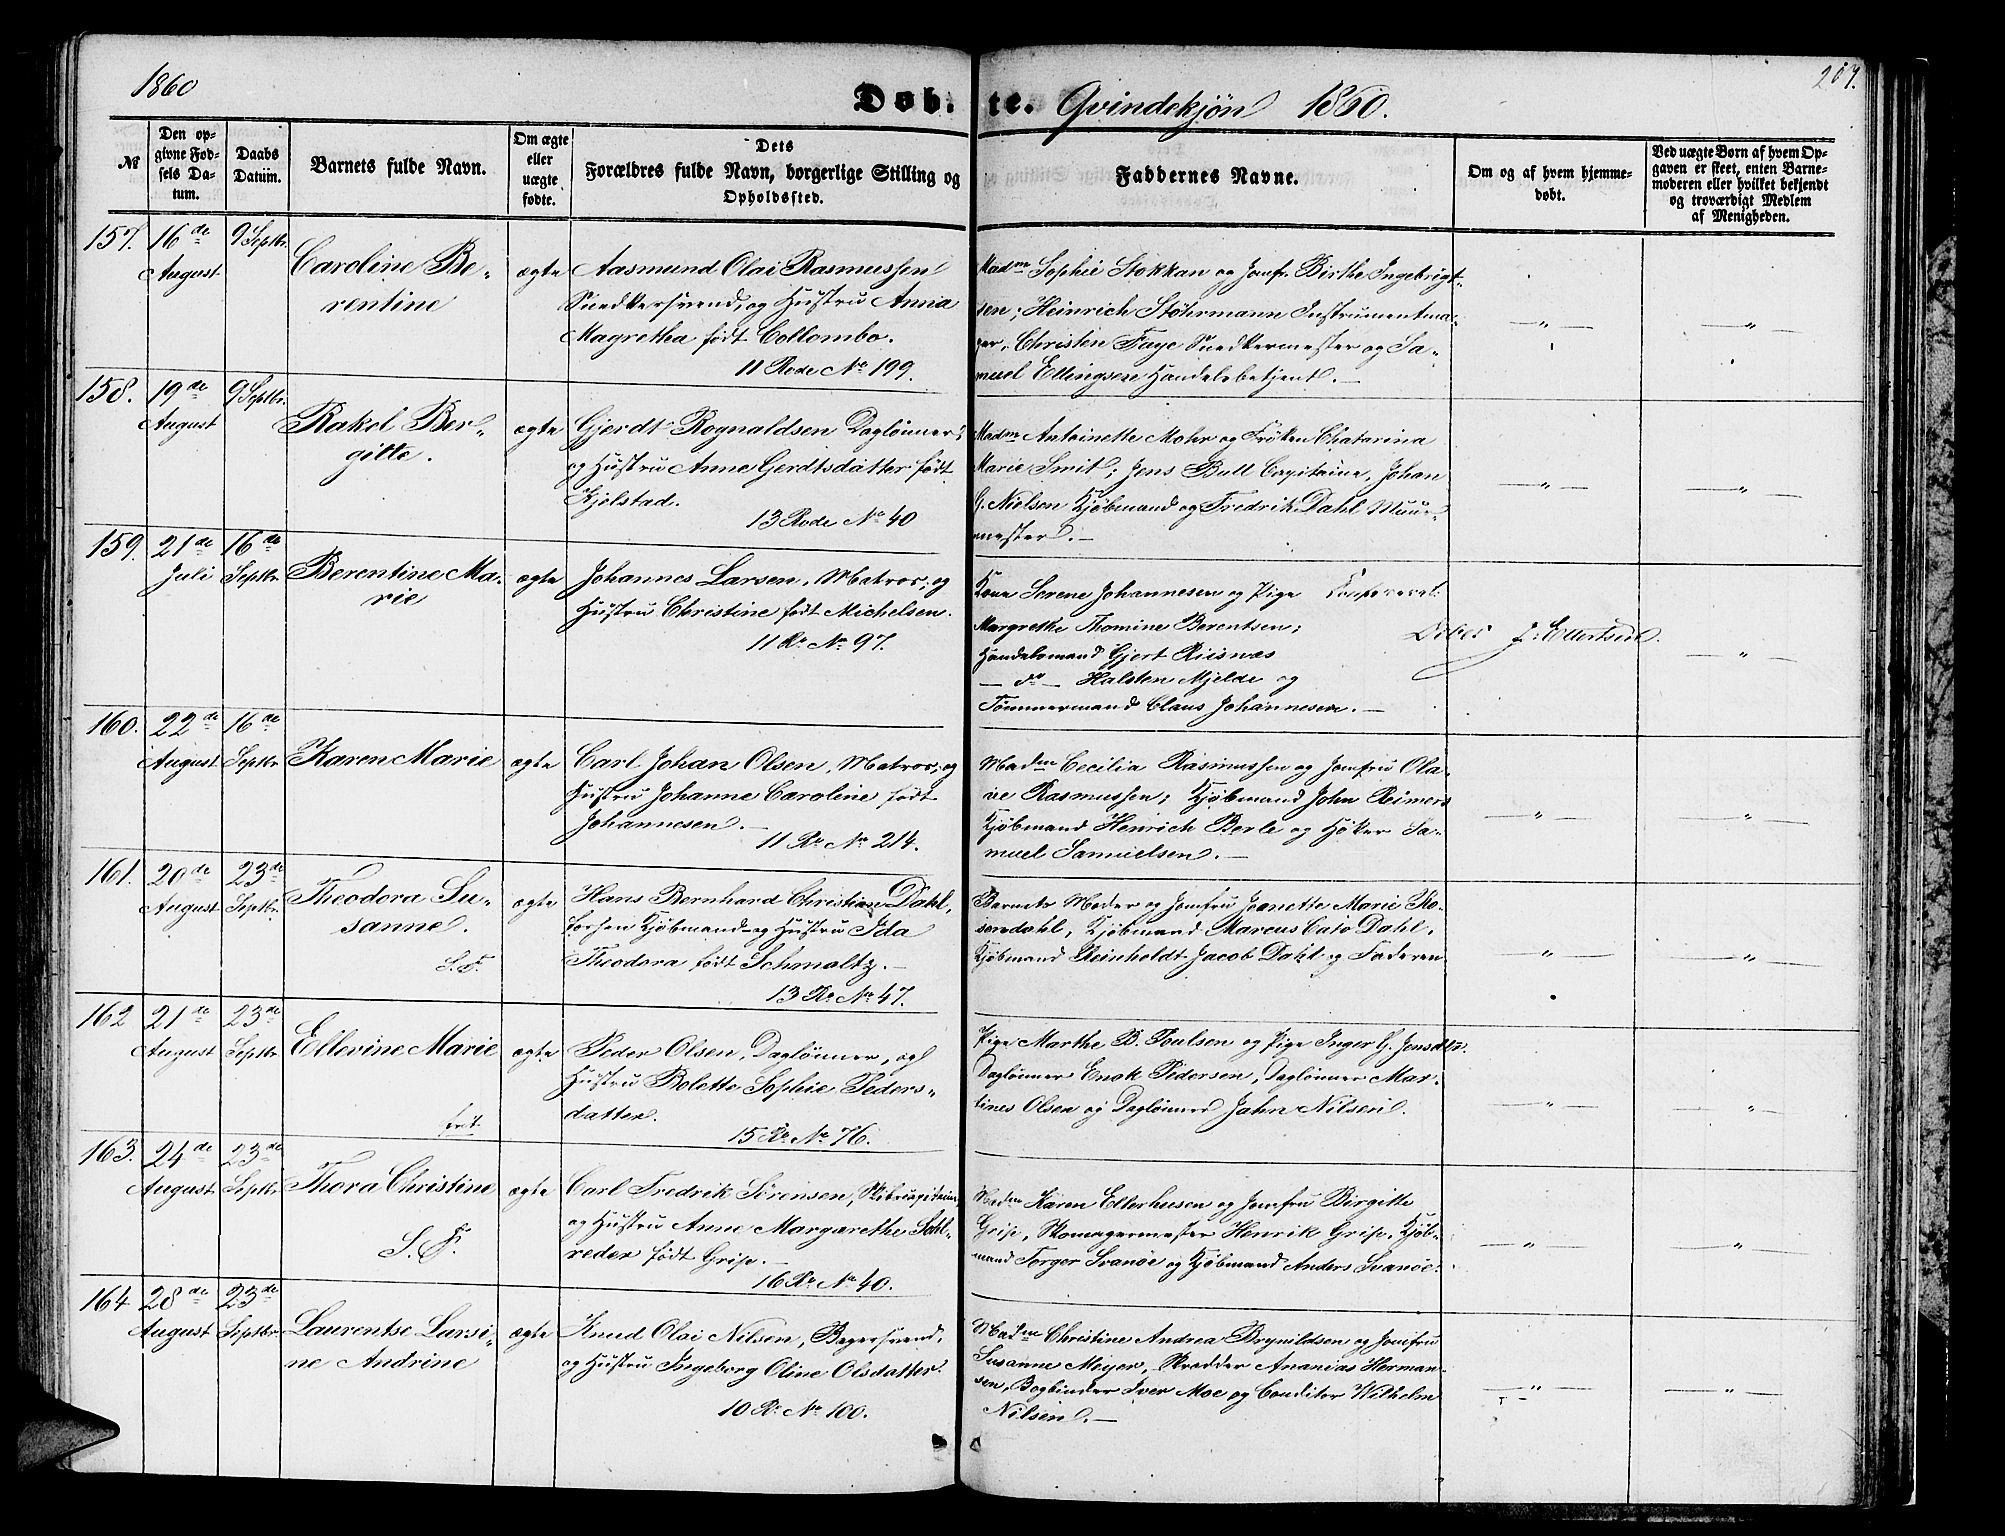 1860
207.
Døb. te. Qvindekjøn 1860.
№
Den op-
givne Fød-
sels Da-
tum.
Daabs
Datum.
Barnets fulde Navn.
Om ægte
eller
uægte
fødte.
Dets
Forældres fulde Navn, borgerlige Stilling og
Opholdssted.
Faddernes Navne.
Om og af hvem hjemme-
døbt.
Ved uægte Børn af hvem Op-
gaven er skeet, enten Barne-
moderen eller hvilket bekjendt
og troværdigt Medlem
af Menigheden.
157. 16de August 9 Septbr.
Caroline Be-
rentine
ægte
Aasmund Olai Rasmussen
Snedkersvend, og Hustru Anna
Magretha født Collombo.
11 Rode No 199.
Madm Sophie Stokkan og Jomfr. Birthe Ingebrigt-
sen; Heinrich Støhrmann Instrumentma-
ger, Christen Faye Snedkermester og Sa-
muel Ellingsen Handelsbetjent.
158. 19de August 9 Septbr.
Rakel Ber-
gitte.
ægte
Gjerdt Rognaldsen Daglønner,
og Hustru Anne Gerdtsdatter født
Kjelstad.
13 Rode No 40
Madm Antoinette Mohr og Frøken Chatarina
Marie Smit; Jens Bull Capitaine, Johan
G. Nielsen Kjøbmand og Fredrik Dahl Muur-
mester.
159. 21de Juli 16de Septbr
Berentine Ma-
rie
ægte
Johannes Larsen, Matros, og
Hustru Christine født Michelsen.
11 R. No 97.
Kone Serene Johannesen og Pige
Margrethe Thomine Berentsen;
Handelsmand Gjert Riisnæs
— do — Halsten Mjelde og
Tømmermand Claus Johannesen.
160. 22de August 16de Septbr
Karen Marie
ægte
Carl Johan Olsen, Matros, og
Hustru Johanne Caroline født
Johannesen.
11 R. No 214.
Madm Cecilia Rasmussen og Jomfru Ola-
ve Rasmussen; Kjøbmand John Reimers
Kjøbmand Henrich Berle og Høker Sa-
muel Samuelsen.
161. 20de August 23de Septbr.
Theodora Su-
sanne.
S. F.
ægte
Hans Bernhard Christian Dahl,
Kjøbmand og Hustru Ida
Theodora født Schmaltz.
13 R. No 47.
Barnets Moder og Jomfru Jeanette Marie Ro-
sendahl, Kjøbmand Marcus Cato Dahl,
Kjøbmand Reinholdt Jacob Dahl og Faderen
162 21de August 23de Septbr
Ellevine Marie
frit.
ægte
Peder Olsen, Daglønner, og
Hustru Bolette Sophie Peders-
datter.
15 R. No 76.
Pige Marthe B. Poulsen og Pige Inger G. Jensdtr.
Dagløner Enok Pedersen, Dagløner Mar-
tines Olsen og Dagløner John Nilsen.
163. 24de August 23de Septbr
Thora Christine
S. F.
ægte
Carl Fredrik Sørensen, Skibscapitaine,
og Hustru Anne Margarethe Sehl-
reder født Grip.
16 R. No 40.
Madm Karen Ellerhusen og Jomfru Birgitte
Grip, Skomagermester Henrik Grip, Kjøb-
mand Torger Svanøe og Kjøbmand Anders Svanøe.
164 28de August 23de Septbr
Laurentse Larsi-
ne Andrine
ægte
Knud Olai Nilsen, Bagersvend,
og Hustru Ingeborg Oline Olsdatter.
10 R. No 100.
Madm Christine Andrea Brynildsen og Jomfru
Susanne Meyer, Skrædder Ananias Herman-
sen, Bogbinder Iver Moe og Conditor Wilhelm
Nilsen.